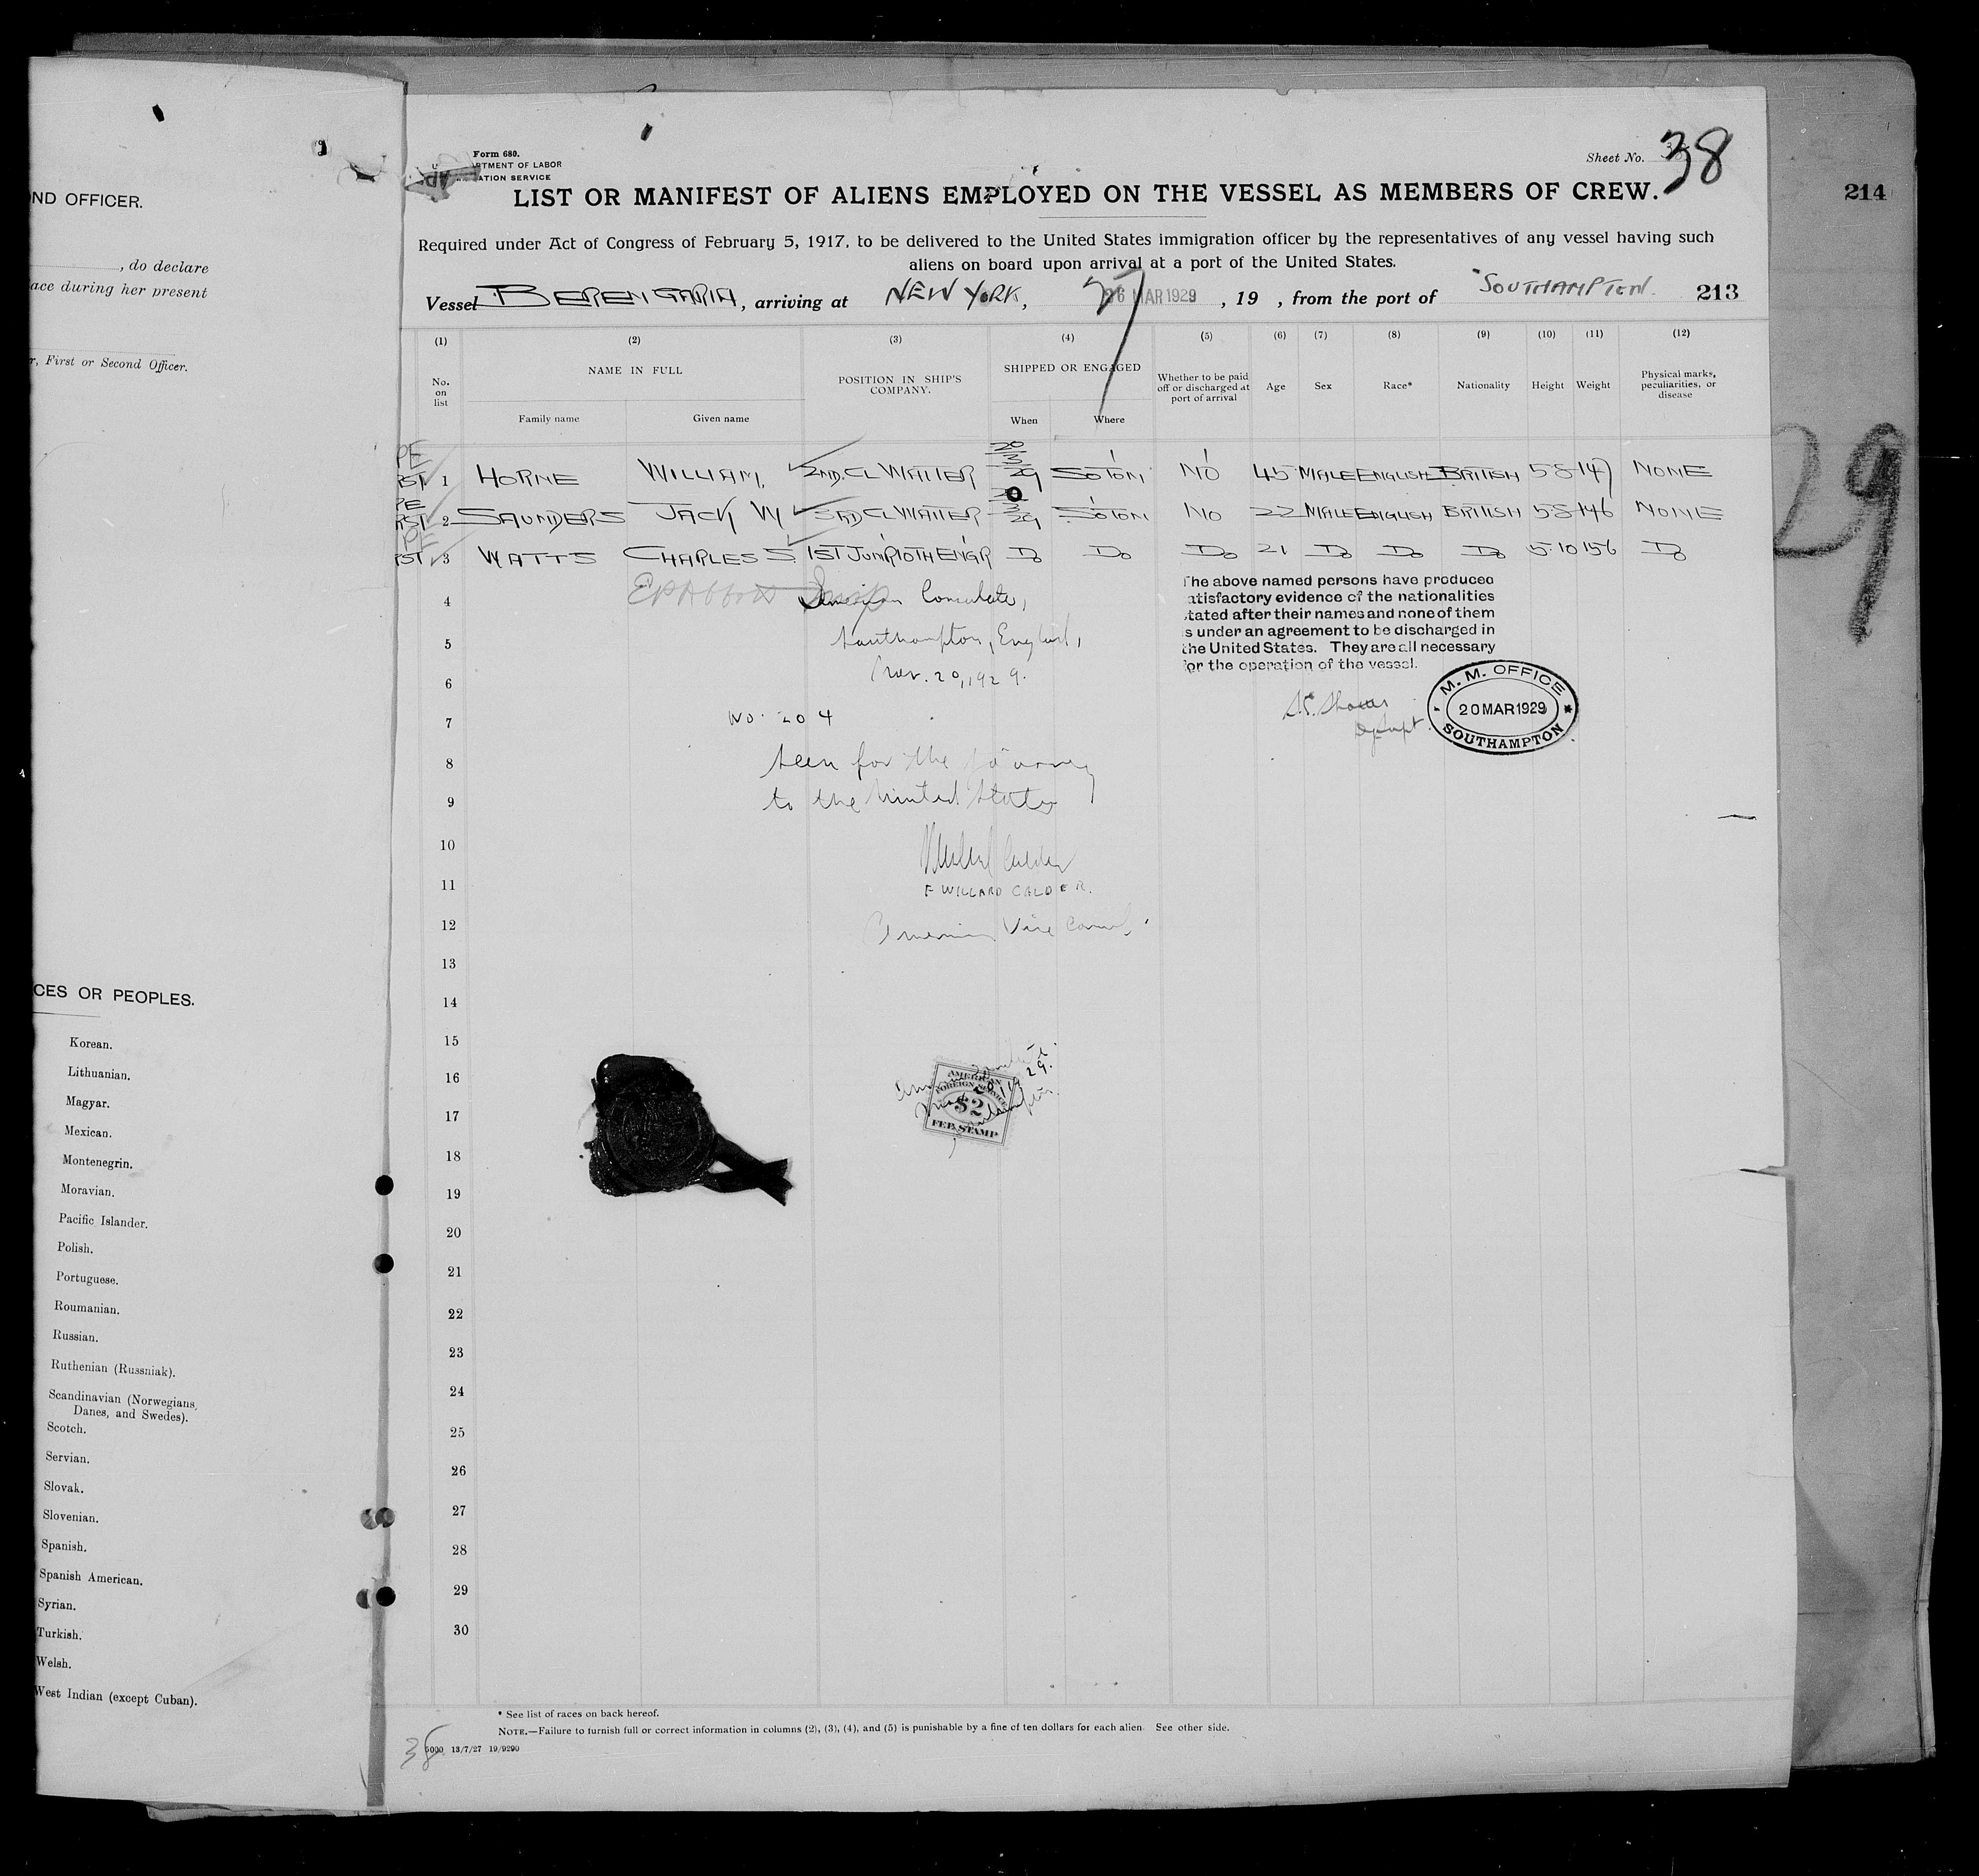 ND OFFICER.
, do declare
ace during her present
r, First or Second Officer.
CES OR PEOPLES.
Korean.
Lithuanian.
Magyar.
Mexican.
Montenegrin.
Moravian.
Pacific Islander.
Polish.
Portuguese.
Roumanian.
Russian.
Ruthenian (Russniak).
Scandinavian (Norwegians,
Danes, and Swedes).
Scotch.
Servian.
Slovak.
Slovenian.
Spanish.
Spanish American.
Syrian.
Turkish.
Welsh.
West Indian (except Cuban).
Form 680.
RTMENT OF LABOR
ATION SERVICE
Sheet No. 38
LIST OR MANIFEST OF ALIENS EMPLOYED ON THE VESSEL AS MEMBERS OF CREW.
214
Required under Act of Congress of February 5, 1917, to be delivered to the United States immigration officer by the representatives of any vessel having such
aliens on board upon arrival at a port of the United States.
Vessel BERENGARIA, arriving at NEW YORK, 27 26 MAR 1929, 19 , from the port of SOUTHAMPTON. 213
(1) (2) (3) (4) (5) (6) (7) (8) (9) (10) (11) (12)
No. on list
NAME IN FULL
Family name
Given name
POSITION IN SHIP'S COMPANY.
SHIPPED OR ENGAGED
When
Where
Whether to be paid off or discharged at port of arrival
Age
Sex
Race*
Nationality
Height
Weight
Physical marks, peculiarities, or disease
1 HORNE WILLIAM. 2ND. CL WAITER SOTON NO 45 MALE ENGLISH BRITISH 5-8 147 NONE
2 SAUNDERS JACK W 3RD CL WAITER SOTON NO 22 MALE ENGLISH BRITISH 5-8 146 NONE
3 WATTS CHARLES S. 1ST JUN 10TH ENGR DO DO DO 21 DO DO DO 5-10 156 DO
4
American Consulate,
5
Southampton, England,
6
Mar. 20, 1929.
7
NO. 204
8
Seen for the journey
9
to the United States
10
11
F WILLARD CALDER.
12
American Vice Consul
The above named persons have produced
atisfactory evidence of the nationalities
tated after their names and none of them
s under an agreement to be discharged in
the United States. They are all necessary
for the operation of the vessel.
M. M. OFFICE
20 MAR 1929
SOUTHAMPTON
29
13
14
15
16
17
18
19
20
21
22
23
24
25
26
27
28
29
30
AMERICAN
FOREIGN SERVICE
$2
FEE STAMP
* See list of races on back hereof.
NOTE.—Failure to furnish full or correct information in columns (2), (3), (4), and (5) is punishable by a fine of ten dollars for each alien. See other side.
38
5000 13/7/27 19/9290